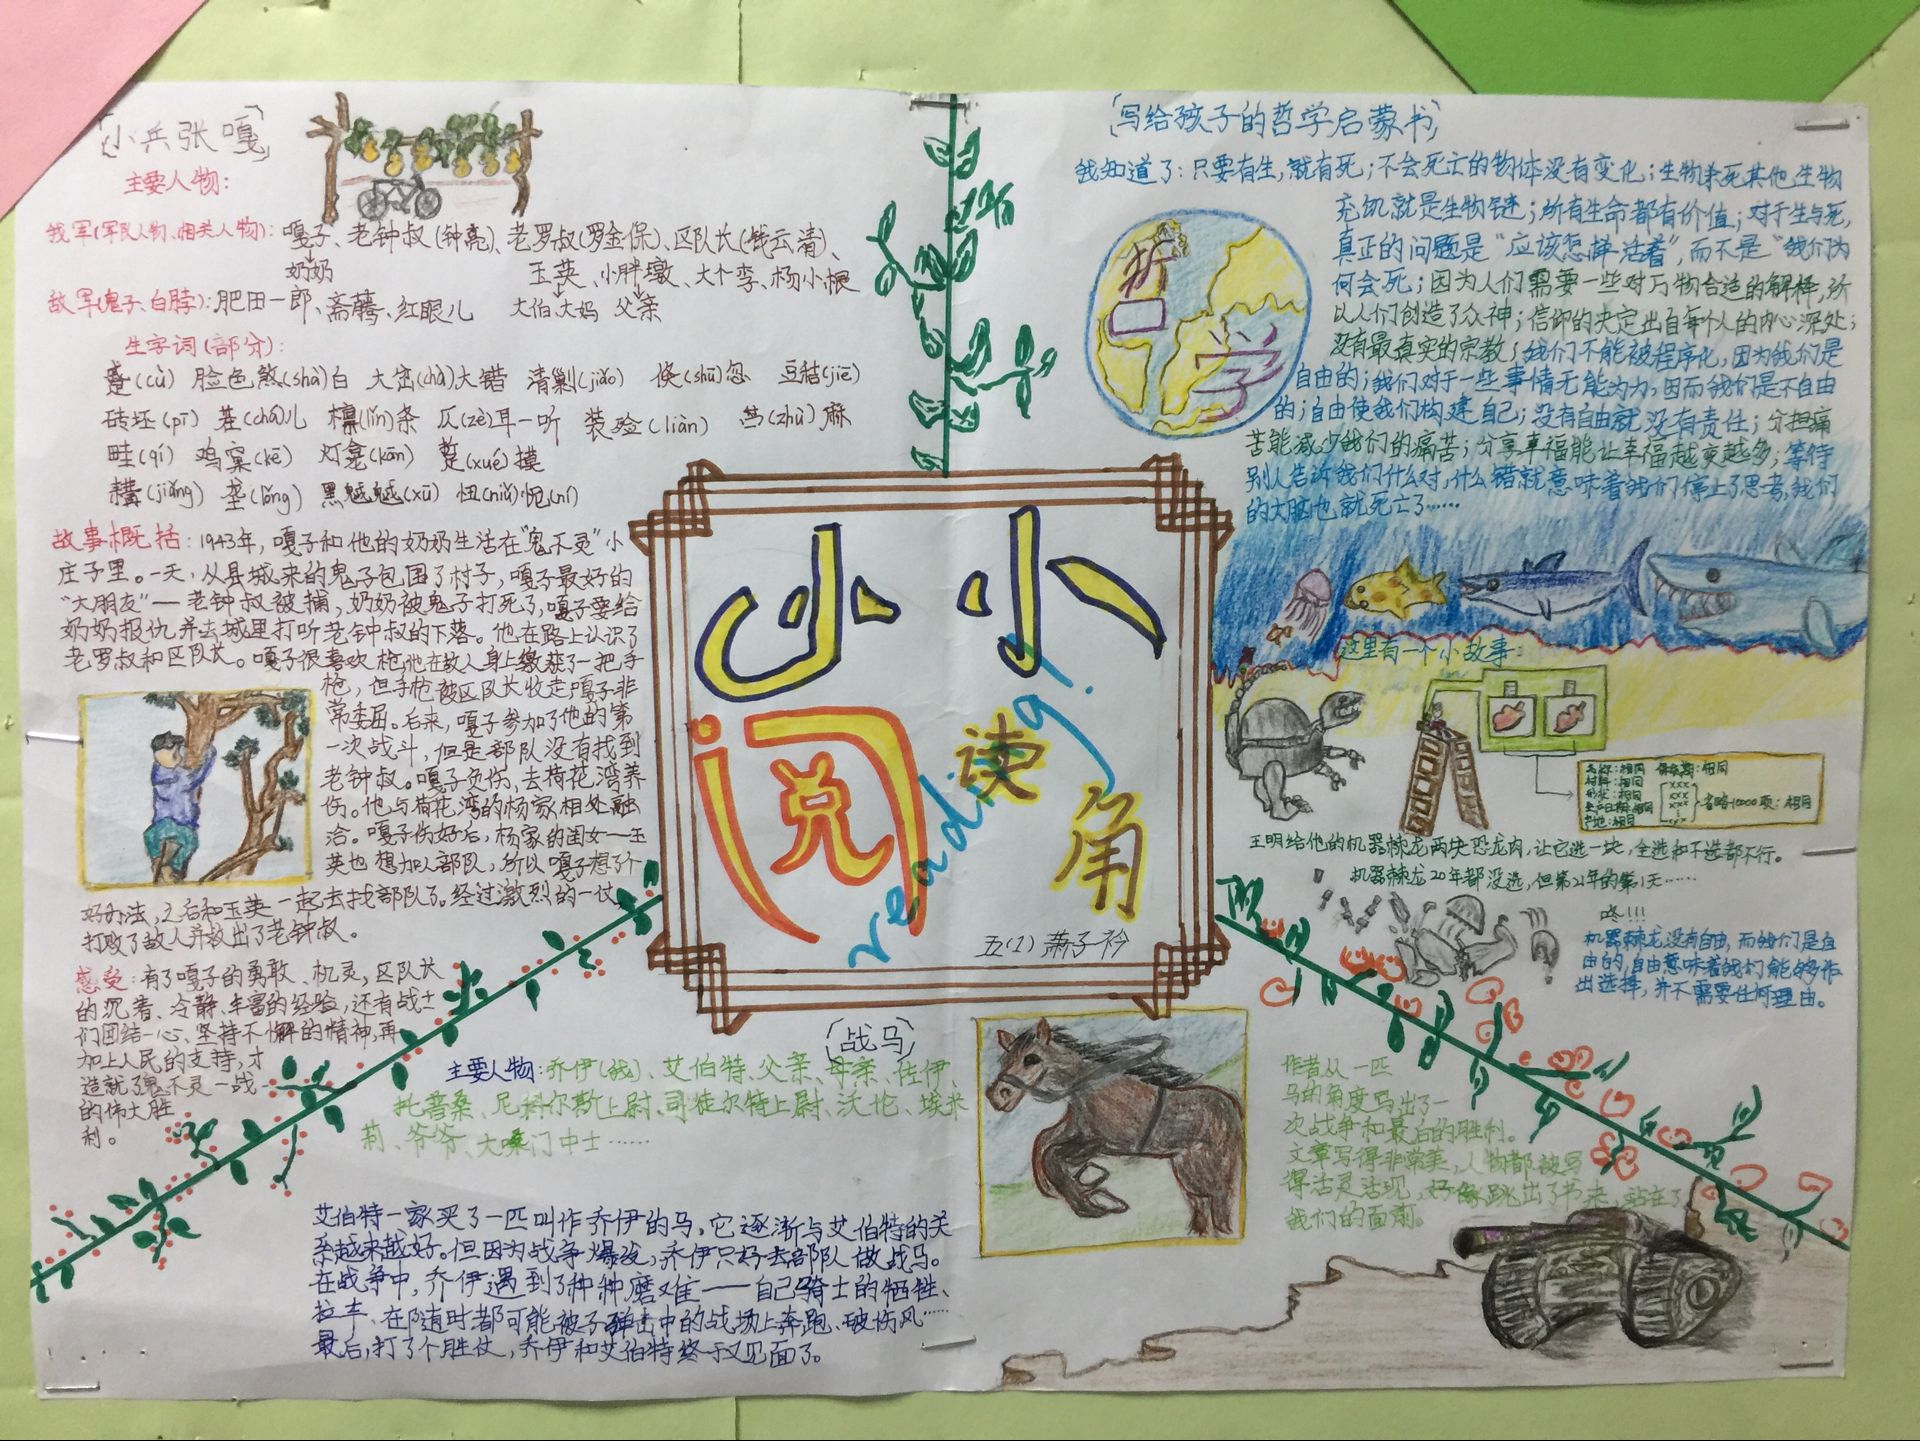 小兵张嘎
主要人物:
我军(军队人物、相关人物):嘎子、老钟叔(钟亮)、老罗叔(罗金保)、区队长(钱云清)、
奶奶 玉英、小胖墩、大个李、杨小根
敌军(鬼子、白脖):肥田一郎、斋藤、红眼儿 大伯、大妈 父亲
生字词(部分):
蹙(cù) 脸色煞(shà)白 大岔(chà)大错 清剿(jiǎo) 倏(shū)忽 豆秸(jiē)
砖坯(pī) 茬(chá)儿 檩(lǐn)条 仄(zè)耳一听 装殓(liàn) 苎(zhù)麻
畦(qí) 鸡窠(kē) 灯龛(kān) 踅(xué)摸
耩(jiǎng) 垄(lǒng) 黑魆魆(xū) 忸(niǔ)怩(ní)
故事概括:1943年,嘎子和他的奶奶生活在“鬼不灵”小
庄子里。一天,从县城来的鬼子包围了村子,嘎子最好的
“大朋友”—老钟叔被捕,奶奶被鬼子打死了,嘎子要给
奶奶报仇并去城里打听老钟叔的下落。他在路上认识了
老罗叔和区队长。嘎子很喜欢枪,他在敌人身上缴获了一把手
枪,但手枪被区队长收走,嘎子非
常委屈。后来,嘎子参加了他的第
一次战斗,但是部队没有找到
老钟叔。嘎子负伤,去荷花湾养
伤。他与荷花湾的杨家相处融
洽。嘎子伤好后,杨家的闺女—玉
英也想加入部队,所以嘎子想了个
好办法,之后和玉英一起去找部队了。经过激烈的一仗,
打败了敌人并救出了老钟叔。
感受:有了嘎子的勇敢、机灵,区队长
的沉着、冷静、丰富的经验,还有战士
们团结一心、坚持不懈的精神,再
加上人民的支持,才
造就了鬼不灵一战
的伟大胜
利。
小小
阅读角
reading!
五(1)萧子衿
写给孩子的哲学启蒙书
我知道了:只要有生,就有死;不会死亡的物体没有变化;生物杀死其他生物
充饥就是生物链;所有生命都有价值;对于生与死,
真正的问题是“应该怎样活着”,而不是“我们为
何会死;因为人们需要一些对万物合适的解释,所
以人们创造了众神;信仰的决定出自每个人的内心深处;
没有最真实的宗教;我们不能被程序化,因为我们是
自由的;我们对于一些事情无能为力,因而我们是不自由
的;自由使我们构建自己;没有自由就没有责任;分担痛
苦能减少我们的痛苦;分享幸福能让幸福越变越多;等待
别人告诉我们什么对,什么错就意味着我们停止了思考,我们
的大脑也就死亡了……
哲学
这里有一个小故事:
名称:相同 保质期:相同
材料:相同 xxx
形状:相同 xxx
生产日期:相同 xxx 省略10000项:相同
产地:相同
王明给他的机器棘龙两块恐龙肉,让它选一块,全选和不选都不行。
机器棘龙20年都没选,但第21年的第1天……
咚!!!
机器棘龙没有自由,而我们是自
由的,自由意味着我们能够作
出选择,并不需要任何理由。
战马
主要人物:乔伊(我)、艾伯特、父亲、母亲、佐伊、
托普桑、尼科尔斯上尉、司徒尔特上尉、沃伦、埃米
莉、爷爷、大嗓门中士……
艾伯特一家买了一匹叫作乔伊的马,它逐渐与艾伯特的关
系越来越好。但因为战争爆发,乔伊只好去部队做战马。
在战争中,乔伊遇到了种种磨难——自己骑士的牺牲、
拉车、在随时都可能被子弹击中的战场上奔跑、破伤风……
最后,打了个胜仗,乔伊和艾伯特终于又见面了。
作者从一匹
马的角度写出了一
次战争和最后的胜利。
文章写得非常美,人物都被写
得活灵活现,好像跳出了书来,站在了
我们的面前。